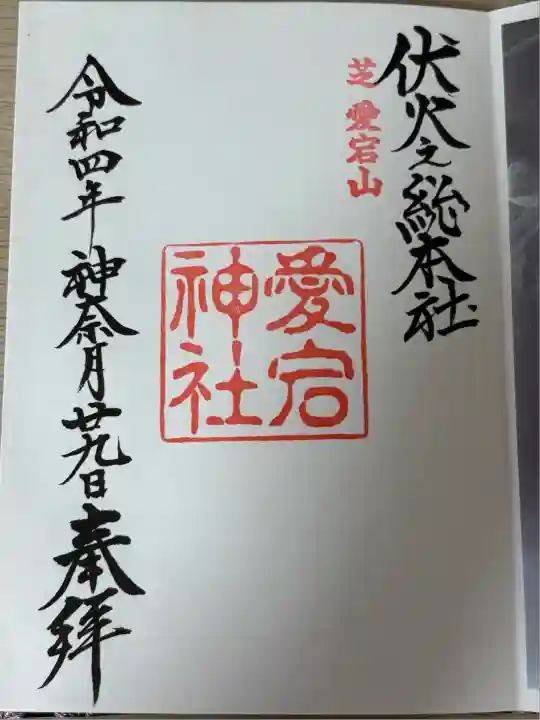 伏火之総本社
芝 愛宕山
愛宕
神社
令和四年 神奈月廿九日 奉拝